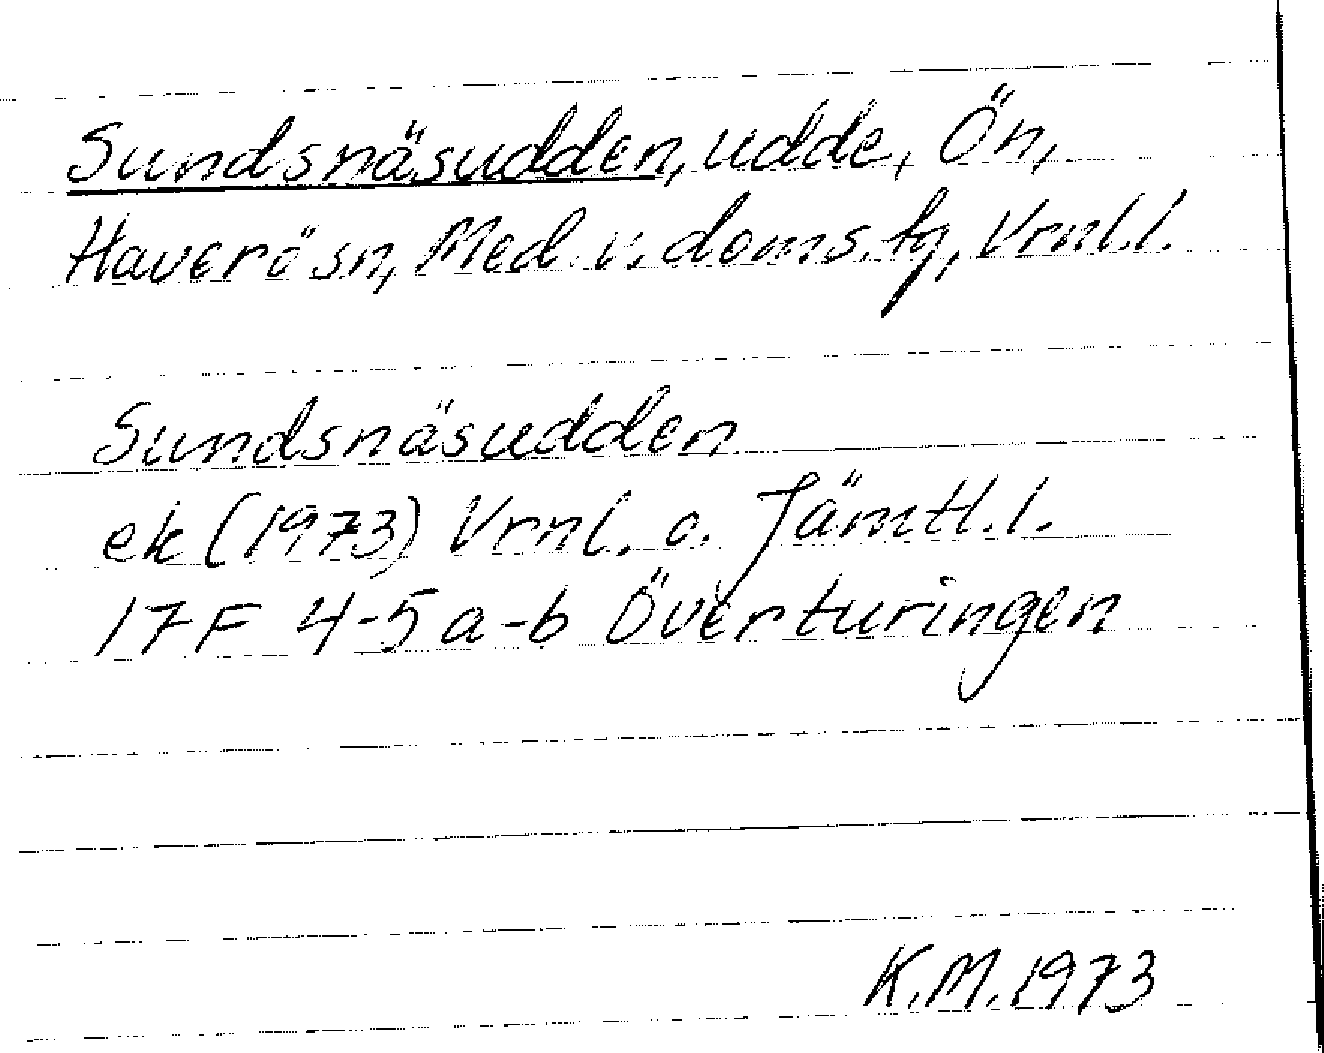 Sundsnäsudden, udde, Ön,
Haverö sn, Med. v. doms. tg, Vrnl.l.
Sundsnäsudden
ek (1973) Vrnl. o. Jämtl.l.
17F 4-5 a-b Överturingen
K.M. 1973